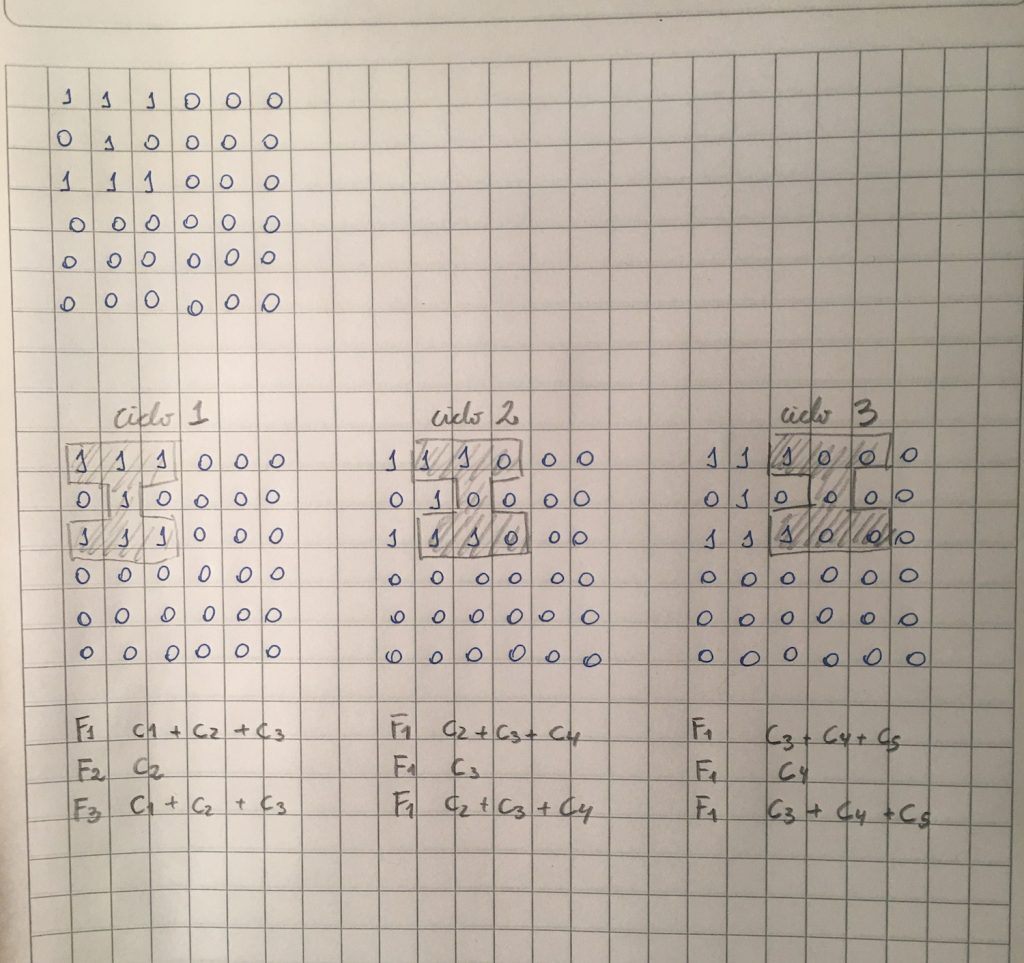 1 1 1 0 0 0
0 1 0 0 0 0
1 1 1 0 0 0
0 0 0 0 0 0
0 0 0 0 0 0
0 0 0 0 0 0
ciclo 1 ciclo 2 ciclo 3
1 1 1 0 0 0 1 1 1 0 0 0 1 1 1 0 0 0
0 1 0 0 0 0 0 1 0 0 0 0 0 1 0 0 0 0
1 1 1 0 0 0 1 1 1 0 0 0 1 1 1 0 0 0
0 0 0 0 0 0 0 0 0 0 0 0 0 0 0 0 0 0
0 0 0 0 0 0 0 0 0 0 0 0 0 0 0 0 0 0
0 0 0 0 0 0 0 0 0 0 0 0 0 0 0 0 0 0
F1 C1 + C2 + C3 F1 C2 + C3 + C4 F1 C3 + C4 + C5
F2 C2 F1 C3 F1 C4
F3 C1 + C2 + C3 F1 C2 + C3 + C4 F1 C3 + C4 + C5